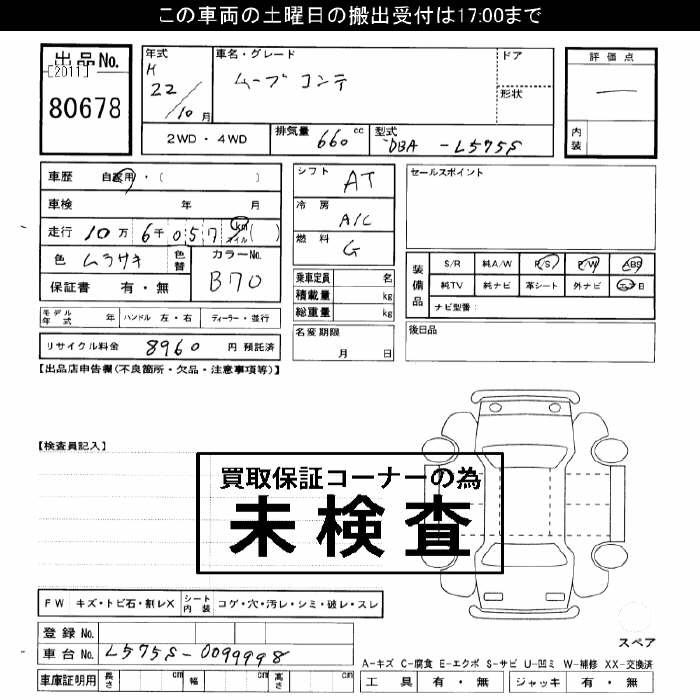 この車両の土曜日の搬出受付は17:00まで
出品No.
[2011]
80678
年式
H
22/10月
車名・グレード
ムーブコンテ
ドア
形状
評価点
一
内装
2WD・4WD
排気量 660 cc
型式 DBA - L575S
車歴 自家用・( )
車検 年 月
走行 10万6千057 km マイル ( )
色 ムラサキ
色替
カラーNo.
B70
保証書 有・無
モデル年式 年
ハンドル 左・右
ディーラー・並行
リサイクル料金 8960 円 預託済
シフト AT
冷房 A/C
燃料 G
乗車定員 名
積載量 kg
総重量 kg
名変期限
月 日
セールスポイント
装備品
S/R 純A/W P/S P/W ABS
純TV 純ナビ 革シート 外ナビ エアB
ナビ型番:
後日品
【出品店申告欄(不良箇所・欠品・注意事項等)】
【検査員記入】
買取保証コーナーの為
未検査
FW キズ・トビ石・割レX
シート内装 コゲ・穴・汚レ・シミ・破レ・スレ
登録No.
車台No. L575S-0099998
車庫証明用 長さ cm 幅 cm 高さ cm
スペア
A-キズ C-腐食 E-エクボ S-サビ U-凹ミ W-補修 XX-交換済
工具 有・無 ジャッキ 有・無